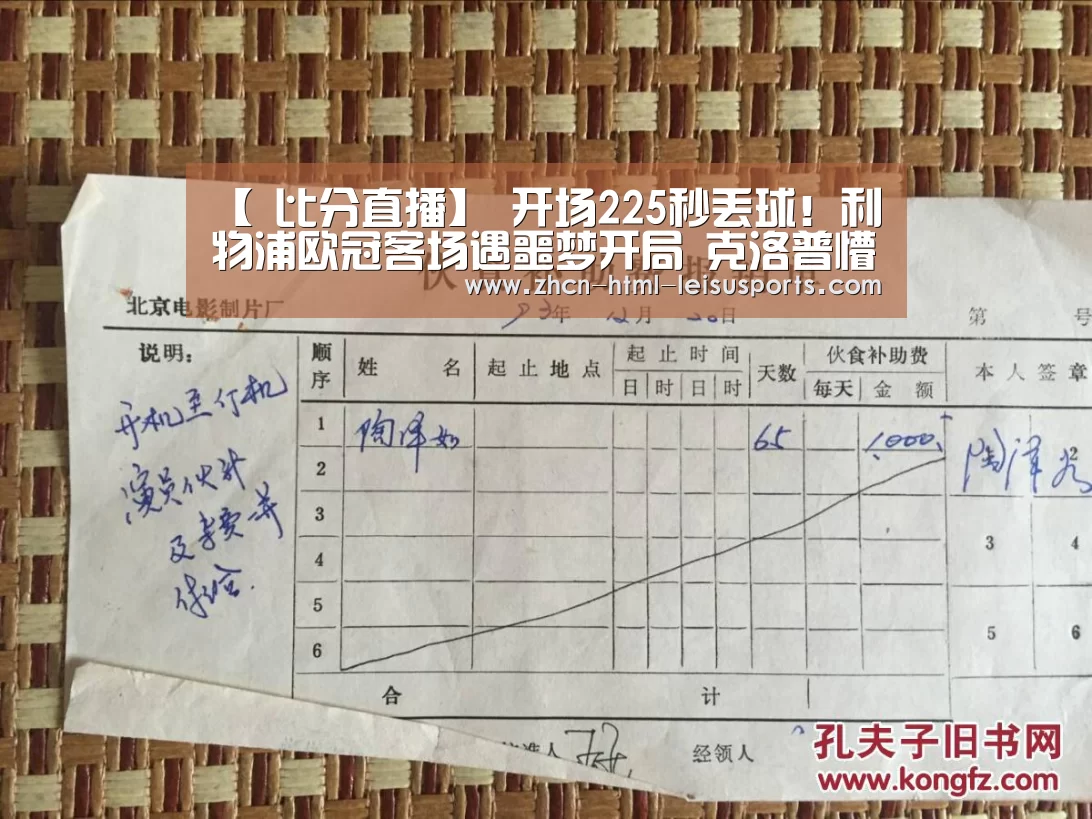 【 比分直播】 开场225秒丢球！利
物浦欧冠客场遇噩梦开局 克洛普懵
www.zhcn-html-leisusports.com
北京电影制片厂
93年 12月 20日
第 号
说明：
开机至停机
演员伙补
顺序 姓 名 起止地点 起止时间 天数 伙食补助费 本人签章
日 时 日 时 每天 金 额
1 陶泽如 65 1000 陶泽如 2
2
3 3 4
4
5 5 6
6
合 计
批准人 经领人
孔夫子旧书网
www.kongfz.com